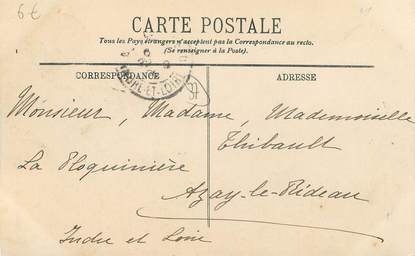 6€
CARTE POSTALE
Tous les Pays étrangers n'acceptent pas la Correspondance au recto.
(Se renseigner à la Poste).
CORRESPONDANCE ADRESSE
INDRE-ET-LOIRE
Monsieur, Madame, Mademoiselle
Thibault
La Ploquinière
Azay-le-Rideau
Indre et Loire